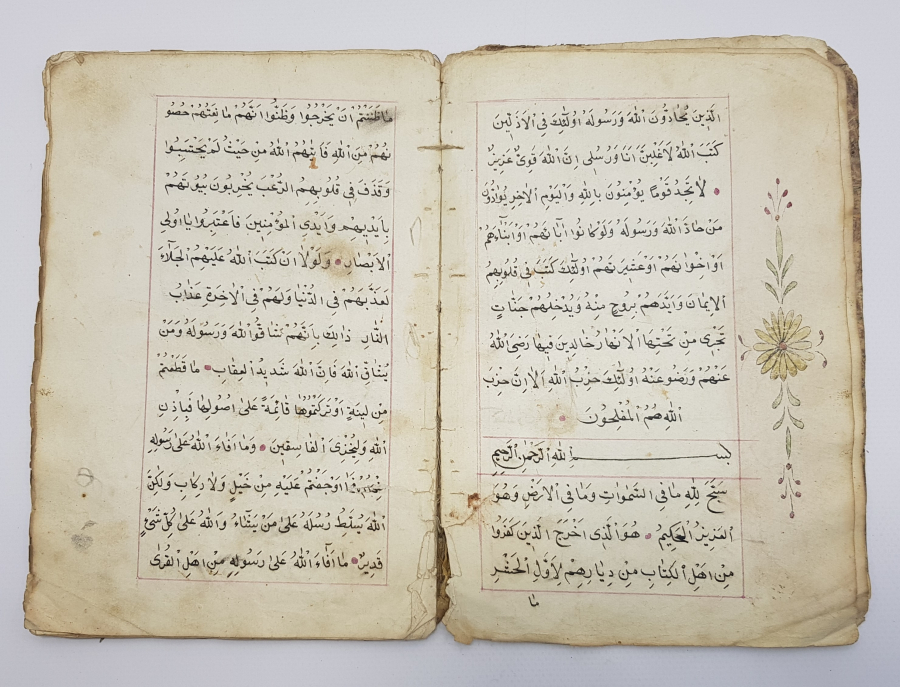 الَّذِينَ يُحَادُّونَ اللهَ وَرَسُولَهُ اُولٰئِكَ فِى الْاَذَلِّينَ
كَتَبَ اللهُ لَاَغْلِبَنَّ اَنَا وَرُسُلِى اِنَّ اللهَ قَوِىٌّ عَزِيزٌ
لَا تَجِدُ قَوْمًا يُؤْمِنُونَ بِاللهِ وَالْيَوْمِ الْاٰخِرِ يُوَادُّونَ
مَنْ حَادَّ اللهَ وَرَسُولَهُ وَلَوْ كَانُوا اٰبَاءَهُمْ اَوْ اَبْنَاءَهُمْ
اَوْ اِخْوَانَهُمْ اَوْ عَشِيرَتَهُمْ اُولٰئِكَ كَتَبَ فِى قُلُوبِهِمُ
الْاِيمَانَ وَاَيَّدَهُمْ بِرُوحٍ مِنْهُ وَيُدْخِلُهُمْ جَنَّاتٍ
تَجْرِى مِنْ تَحْتِهَا الْاَنْهَارُ خَالِدِينَ فِيهَا رَضِىَ اللهُ
عَنْهُمْ وَرَضُوا عَنْهُ اُولٰئِكَ حِزْبُ اللهِ اَلَا اِنَّ حِزْبَ
اللهِ هُمُ الْمُفْلِحُونَ
بِسْمِ اللهِ الرَّحْمٰنِ الرَّحِيمِ
سَبَّحَ لِلهِ مَا فِى السَّمٰوَاتِ وَمَا فِى الْاَرْضِ وَهُوَ
الْعَزِيزُ الْحَكِيمُ هُوَ الَّذِى اَخْرَجَ الَّذِينَ كَفَرُوا
مِنْ اَهْلِ الْكِتَابِ مِنْ دِيَارِهِمْ لِاَوَّلِ الْحَشْرِ
مَا
مَا ظَنَنْتُمْ اَنْ يَخْرُجُوا وَظَنُّوا اَنَّهُمْ مَانِعَتُهُمْ حُصُو
نُهُمْ مِنَ اللهِ فَاَتٰيهُمُ اللهُ مِنْ حَيْثُ لَمْ يَحْتَسِبُوا
وَقَذَفَ فِى قُلُوبِهِمُ الرُّعْبَ يُخْرِبُونَ بُيُوتَهُمْ
بِاَيْدِيهِمْ وَاَيْدِى الْمُؤْمِنِينَ فَاعْتَبِرُوا يَا اُولِى
الْاَبْصَارِ وَلَوْلَا اَنْ كَتَبَ اللهُ عَلَيْهِمُ الْجَلَاءَ
لَعَذَّبَهُمْ فِى الدُّنْيَا وَلَهُمْ فِى الْاٰخِرَةِ عَذَابُ
النَّارِ ذٰلِكَ بِاَنَّهُمْ شَاقُّوا اللهَ وَرَسُولَهُ وَمَنْ
يُشَاقِّ اللهَ فَاِنَّ اللهَ شَدِيدُ الْعِقَابِ مَا قَطَعْتُمْ
مِنْ لِينَةٍ اَوْ تَرَكْتُمُوهَا قَائِمَةً عَلٰى اُصُولِهَا فَبِاِذْنِ
اللهِ وَلِيُخْزِىَ الْفَاسِقِينَ وَمَا اَفَاءَ اللهُ عَلٰى رَسُولِهِ
مِنْهُمْ فَمَا اَوْجَفْتُمْ عَلَيْهِ مِنْ خَيْلٍ وَلَا رِكَابٍ وَلٰكِنَّ
اللهَ يُسَلِّطُ رُسُلَهُ عَلٰى مَنْ يَشَاءُ وَاللهُ عَلٰى كُلِّ شَىْءٍ
قَدِيرٌ مَا اَفَاءَ اللهُ عَلٰى رَسُولِهِ مِنْ اَهْلِ الْقُرٰى